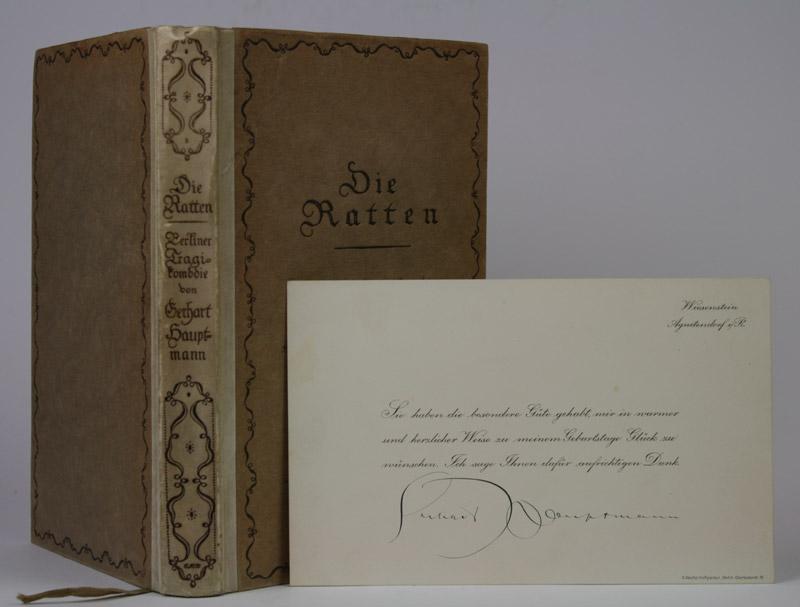 Die
Ratten
Berliner
Tragi-
komödie
von
Gerhart
Haupt-
mann
Die
Ratten
Wiesenstein
Agnetendorf i/R.
Sie haben die besondere Güte gehabt, mir in warmer
und herzlicher Weise zu meinem Geburtstage Glück zu
wünschen. Ich sage Ihnen dafür aufrichtigen Dank.
Gerhart Hauptmann